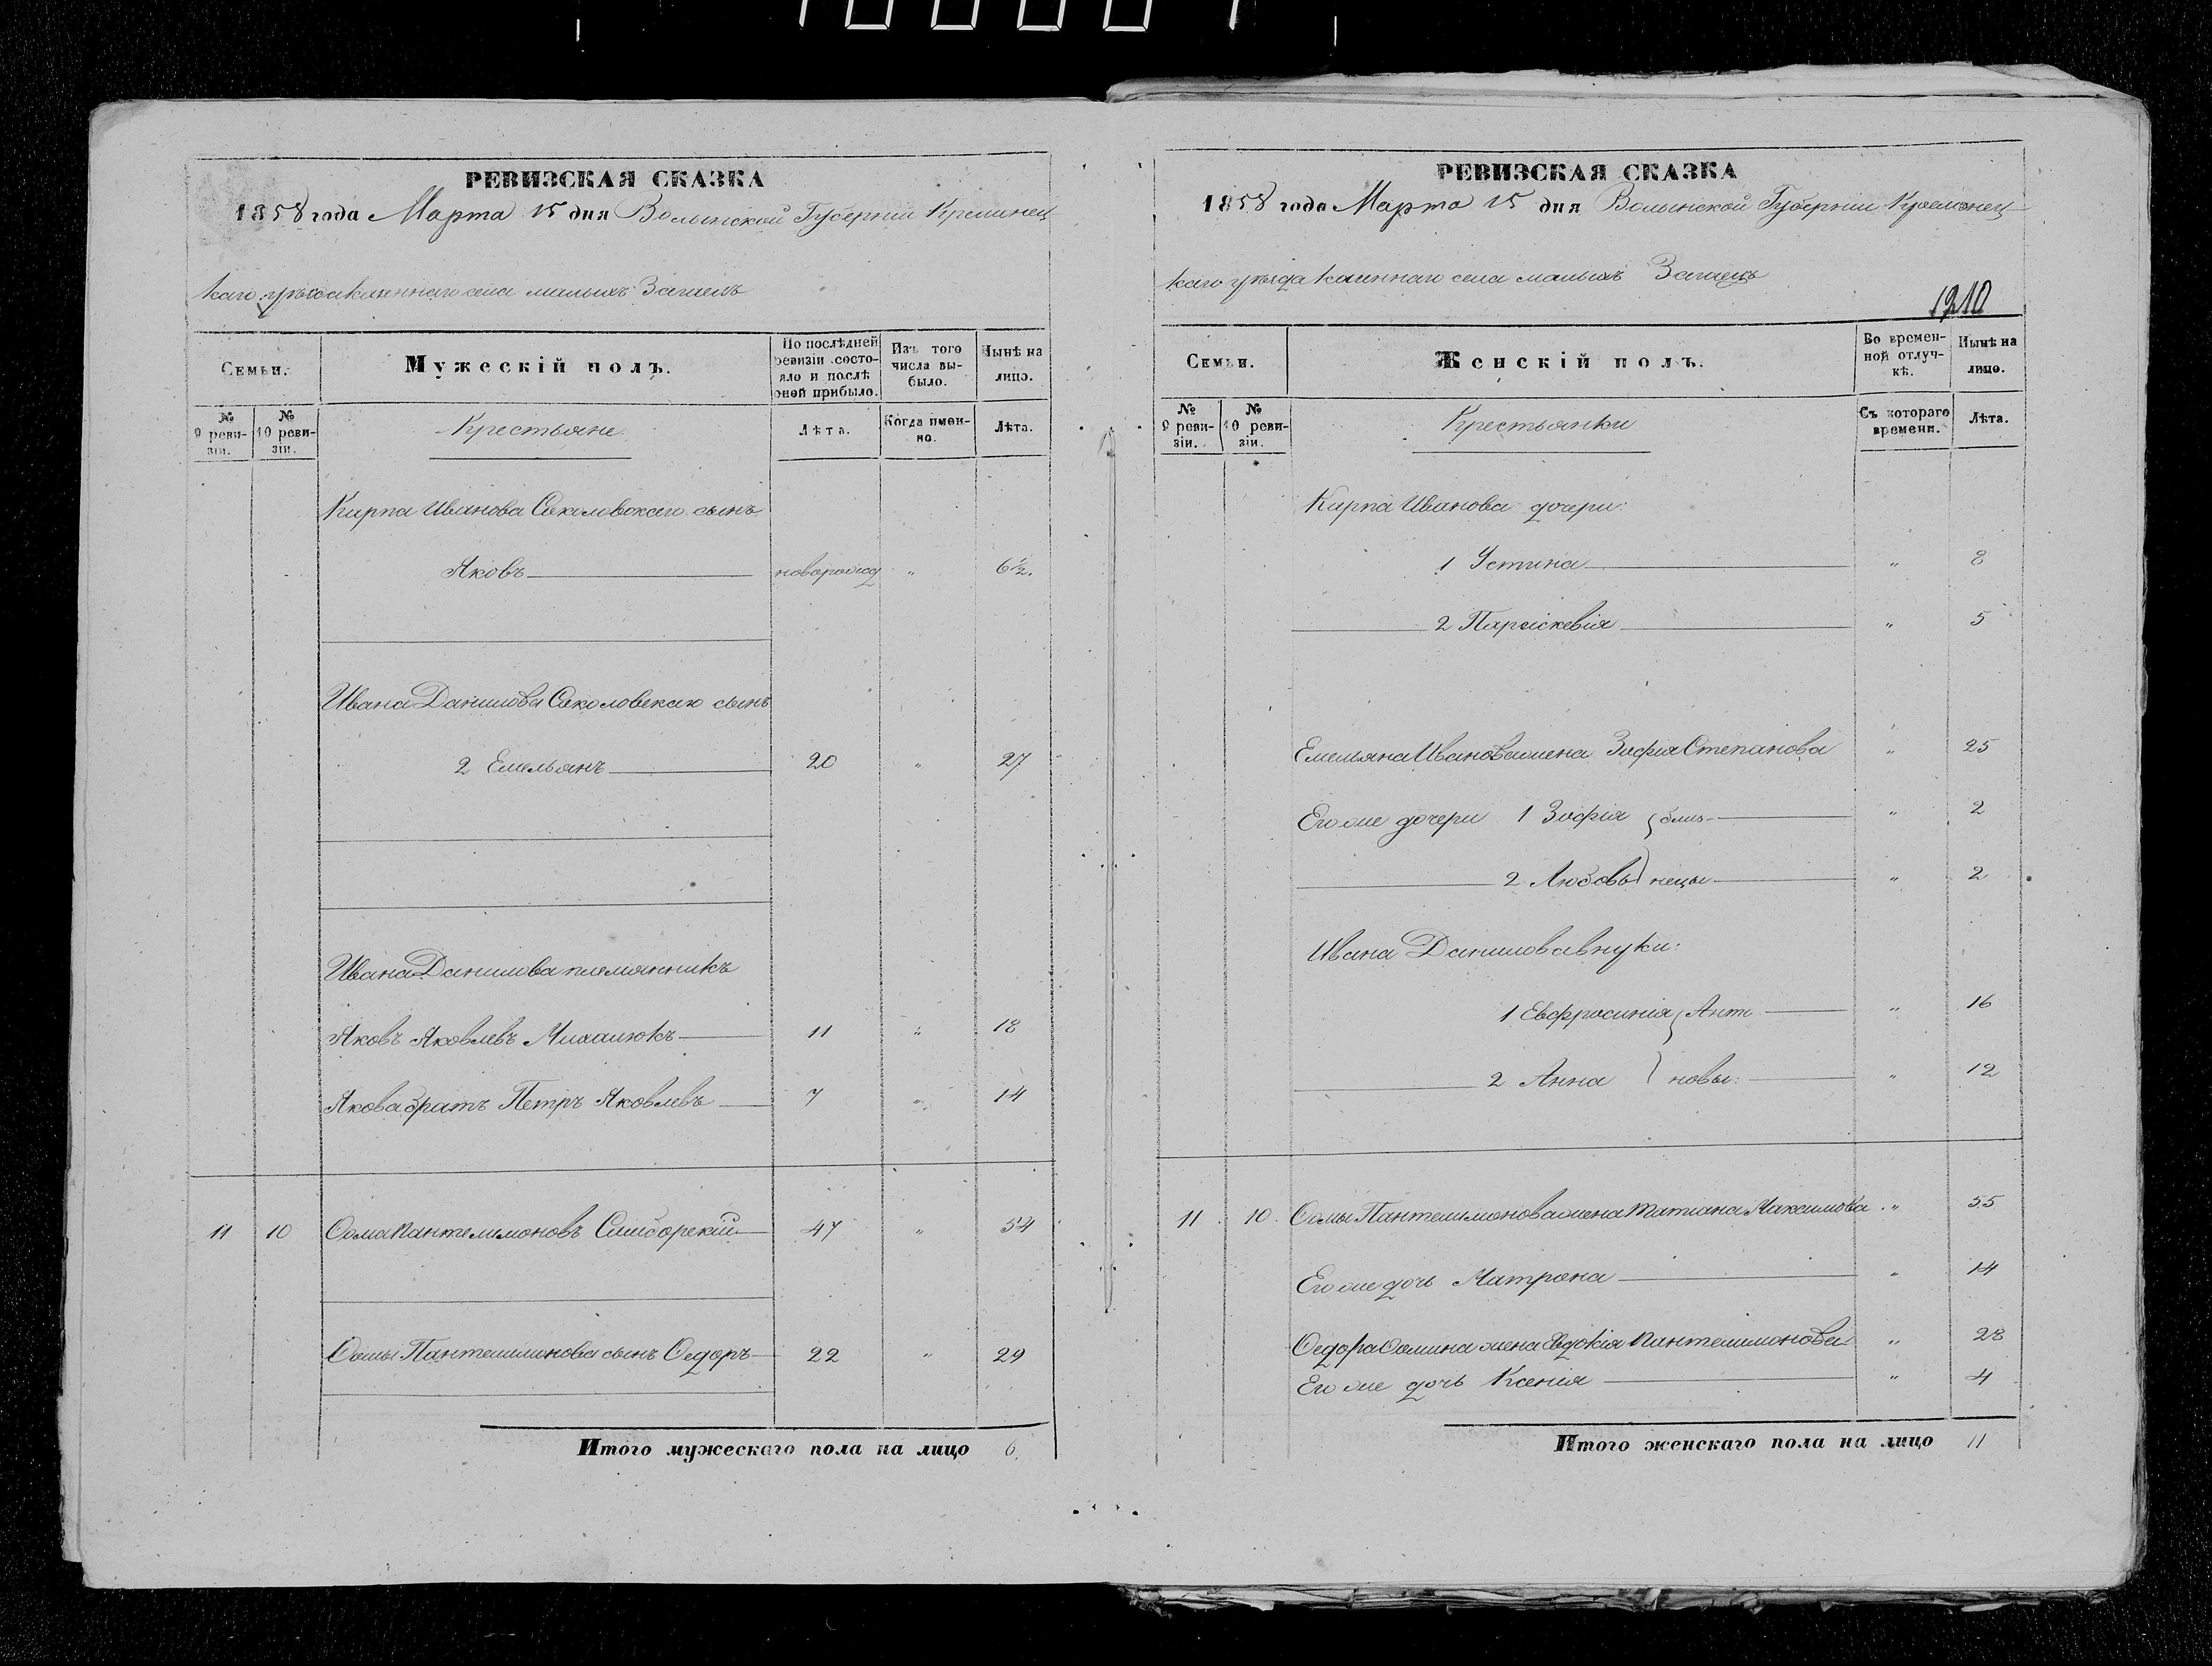 РЕВИЗСКАЯ СКАЗКА
1858 года Марта 15 дня Волынской Губернии Кременец
каго уѣзда казеннаго села малыхъ Загаецъ
Семьи.
Мужескій полъ.
По послѣдней ревизіи состояло и послѣ оной прибыло.
Изъ того числа выбыло.
Нынѣ на лицо.
№ 9 ревизіи.
№ 10 ревизіи.
Крестьяне
Лѣта.
Когда именно.
Лѣта.
Карпа Иванова Соколовскаго сынъ
Яковъ новорожд " 6½.
Ивана Данилова Соколовскаго сынъ
2 Емельянъ 20 " 27
Ивана Данилова племянникъ
Яковъ Яковлевъ Михалюкъ 11 " 18
Якова братъ Петръ Яковлевъ 7 " 14
11 10 Ѳома Пантелимоновъ Самборскій 47 " 54
Ѳомы Пантелимонова сынъ Ѳедоръ 22 " 29
Итого мужескаго пола на лицо 6.
РЕВИЗСКАЯ СКАЗКА
1858 года Марта 15 дня Волынской Губерніи Кременец
каго уѣзда казеннаго села малыхъ Загаецъ
1210
Семьи.
Женскій полъ.
Во временной отлучкѣ.
Нынѣ на лицо.
№ 9 ревизіи.
№ 10 ревизіи.
Крестьянки
Съ котораго времени.
Лѣта.
Карпа Иванова дочери:
1 Устина " 8
2 Параскевія " 5
Емельяна Иванова жена Зофія Степанова " 25
Его же дочери 1 Зофія близ " 2
2 Любовь нецы " 2
Ивана Данилова внуки:
1 Евфросинія Анто " 16
2 Анна новы: " 12
11 10 Ѳомы Пантелимонова жена Татіана Максимова " 55
Его же дочь Матрона " 14
Ѳедора Ѳомина жена Евдокія Пантелимонова " 28
Его же дочь Ксенія " 4
Итого женскаго пола на лицо 11